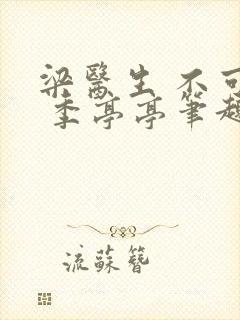 梁醫生不可
季亭亭筆趣
流蘇簪